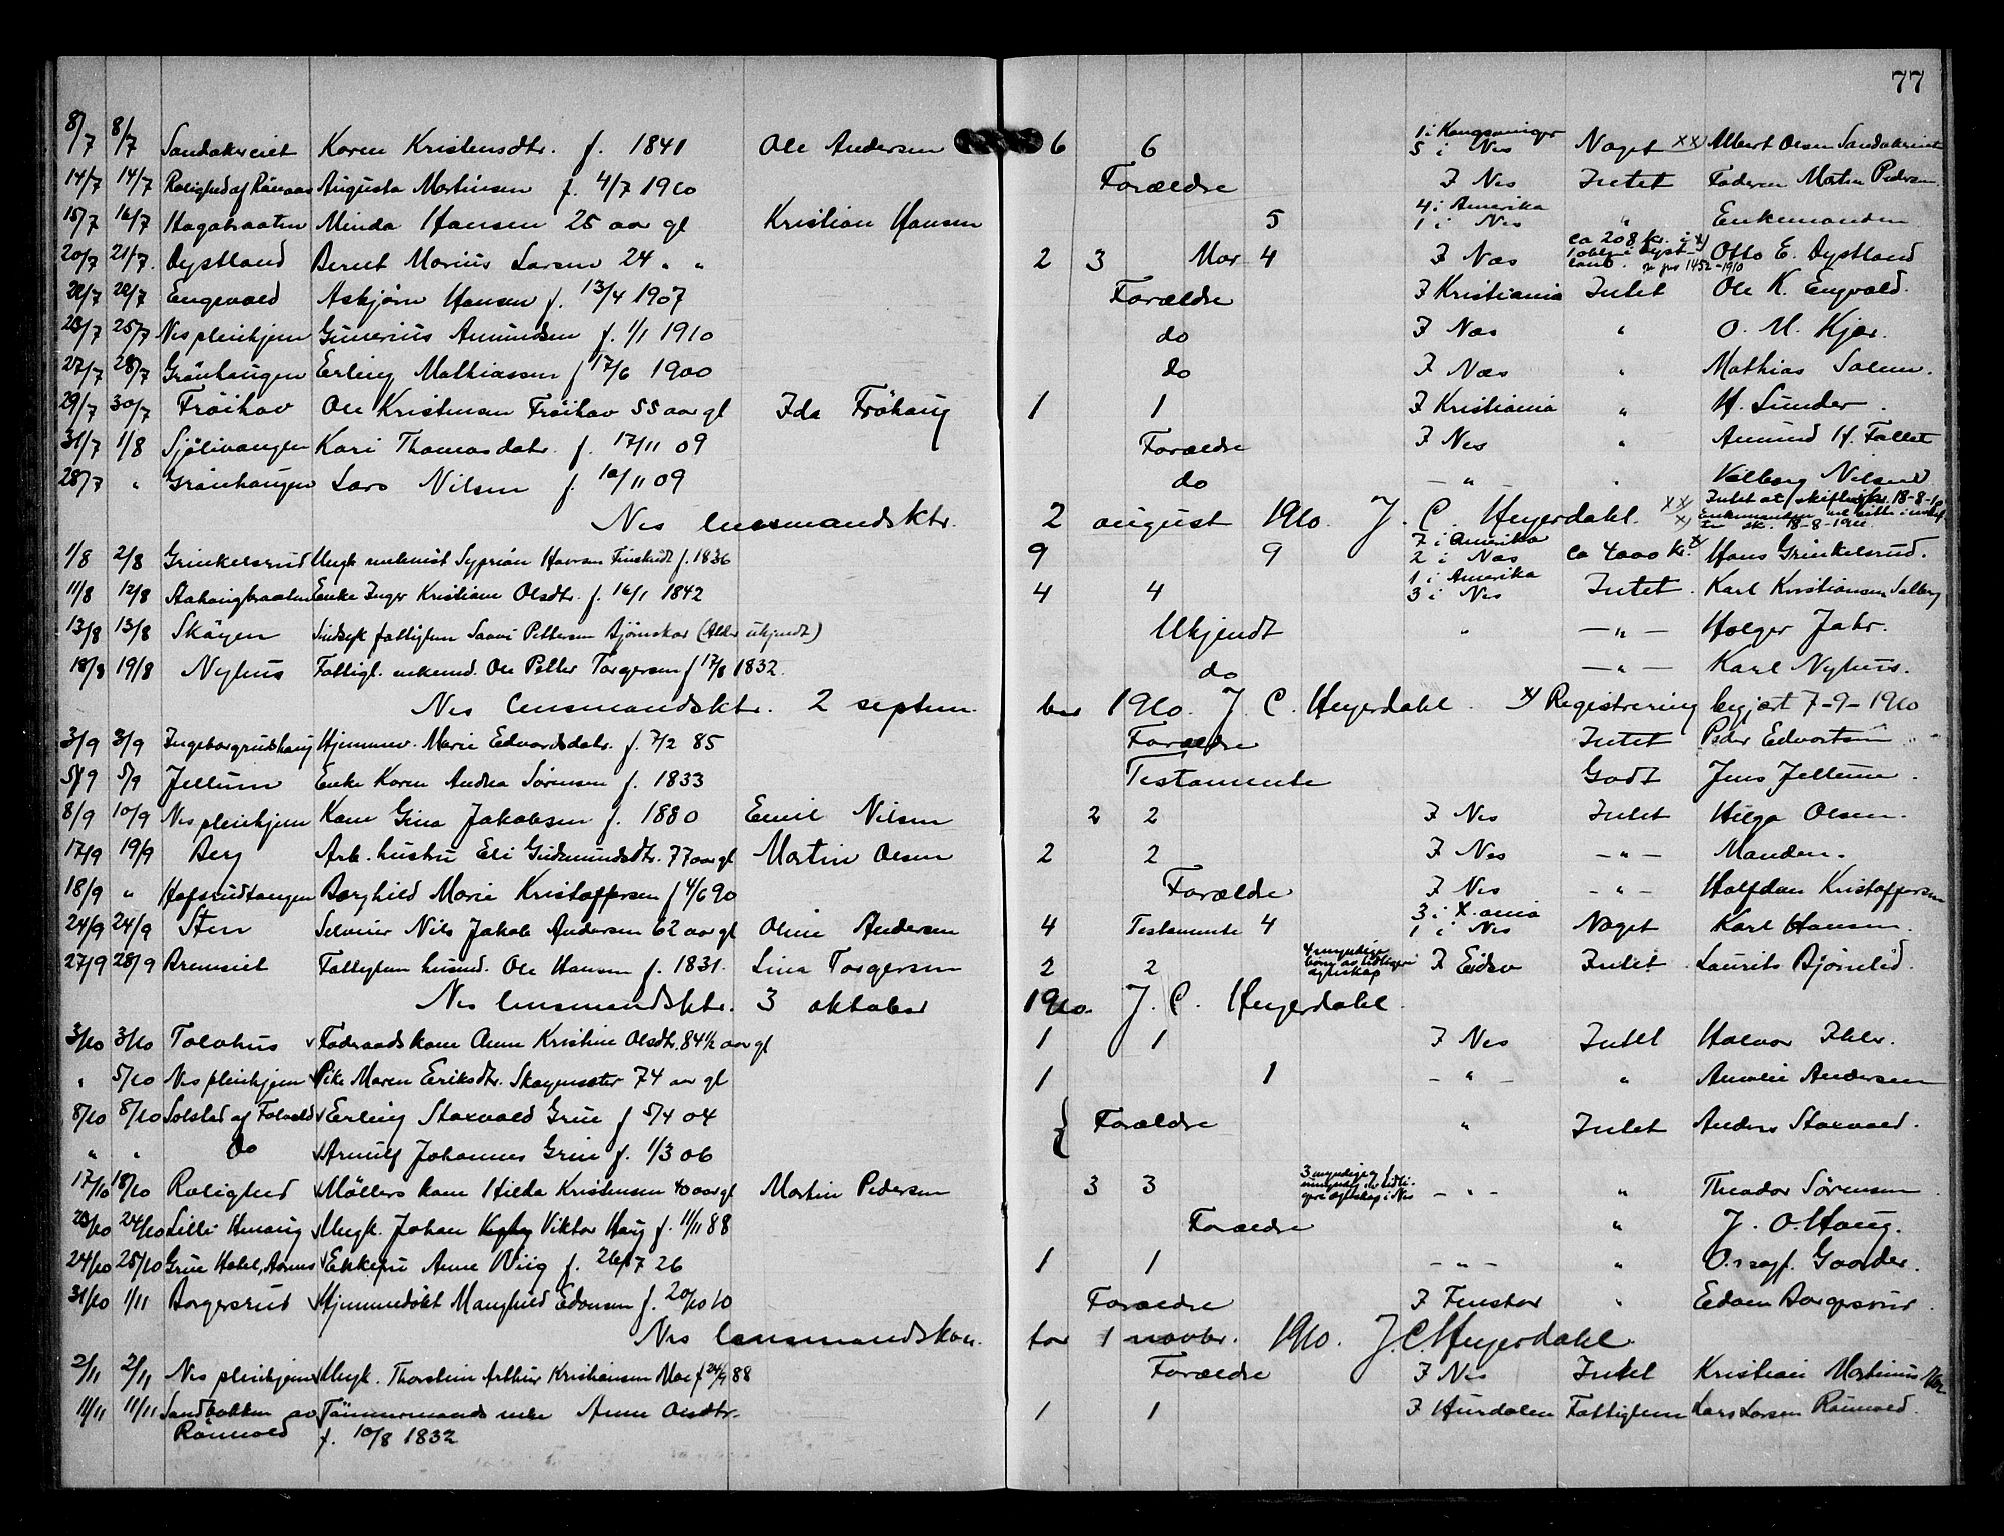 77
8/7 8/7 Sandakreiet Karen Kristensdtr. f. 1841 Ole Andersen 6 6 1 i Kongsvinger 5 i Nes Noget xx) Albert Olsen Sandakreiet
14/7 14/7 Rolighed af Rånaas Augusta Martinsen f. 4/7 1910 Forældre I Nes Intet Faderen Martin Pedersen
15/7 16/7 Hagabraaten Minda Hansen 25 aar gl Kristian Hansen 5 4 i Amerika 1 i Nes " Enkemanden
20/7 21/7 Dystland Bernt Marius Larsen 24 " " 2 3 Mor 4 I Nes ca 208 kr. i x) Otto E. Dystland
22/7 22/7 Engevold Asbjørn Hansen f. 13/4 1907 Forældre I Kristiania Intet Ole K. Engvold.
23/7 25/7 Nes pleiehjem Gunerius Amundsen f. 1/1 1910 do I Nes " O. M. Kjær.
27/7 28/7 Grønhaugen Erling Mathiassen f 17/6 1900 do I Nes " Mathias
29/7 30/7 Frøihov Ole Kristensen Frøihov 55 aar gl Ida Frøhaug 1 1 I Kristiania " H. Sunder.
31/7 1/8 Sjølivangen Kari Thomasdatr. f. 17/11 09 Forældre I Nes " Amund H. Fallet
28/7 " Grønhaugen Lars Nilsen f. 10/11 09 do - " - " Valborg Nilsen
Nes lensmandsktr. 2 august 1910. J. C. Heyerdahl. xx) Intet at skifte 18-8-10
x) Enkemanden vil sitte i uskif-
te sk. 18-8-1910.
1/8 2/8 Grinkelsrud Ungk Syprian f. 1836 9 9 7 i Amerika 2 i Nes ca 4000 kr. x) Hans Grinkelsrud.
11/8 12/8 Enke Inger Kristiane Olsdtr. f. 16/1 1842 4 4 1 i Amerika 3 i Nes Intet Karl Kristiansen Solberg
13/8 13/8 Skøyen Sindsyk fattiglem Pettersen Bjønskar (Alder ukjendt) Ukjendt " - " - Holger Jahr.
18/8 19/8 Nyhus Fattigl. enkemd. Ole Petter Torgersen f 17/8 1832. do - " - Karl Nyhus.
Nes lensmandsktr. 2 septem- ber 1910. J. C. Heyerdahl. x) Registrering begjært 7-9-1910
3/9 3/9 Ingeborgrudshaug Hjemmev. Marie Edvardsdatr. f. 7/2 85 Forældre Intet Peder Edvartsen
5/9 5/9 Jellum Enke Karen Andrea Sørensen f. 1833 Testamente Godt Jens Jellum.
8/9 10/9 Nes pleiehjem Kone Gina Jakobsen f. 1880 Emil Nilsen 2 2 I Nes Intet Helga Olsen.
17/9 19/9 Berg Arb. hustru Eli Gudmundsdtr. 77 aar gl Martin Olsen 2 2 I Nes - " - Manden.
18/9 " Hofsrudtangen Borghild Marie Kristoffersen f 4/6 90 Forældre I Nes - " - Halfdan Kristoffersen
24/9 24/9 Sten Selveier Nils Jakob Andersen 62 aar gl Oline Andersen 4 Testamente 4 3 i X.ania 1 i Nes Noget Karl Hansen.
27/9 28/9 Brenneiet Fattiglem husmd. Ole Hansen f. 1831. Lina Torgersen 2 2 4 myndige børn av tidligere egteskap I Eidsv Intet Laurits Bjørnlid.
Nes lensmandsktr. 3 oktober 1910. J. C. Heyerdahl.
3/10 3/10 Tolvhus Føderaads kone Anne Kristine Olsdtr. 84½ aar gl 1 1 I Nes Intet Halvor
" 5/10 Nes pleiehjem Pike Maren Eriksdtr. 74 aar gl 1 1 - " - " Amalie Andersen
8/10 8/10 Solstad af Folvold Erling Staxvold Grue f 5/4 04 { Forældre " Intet Anders Staxvold.
" " Do Arnulf Johannes Grue f. 1/3 06
17/10 18/10 Rolighed Møllers kone Hilda Kristensen 40 aar gl Martin Pedersen 3 3 3 myndige og 1 umyndig av tidli- gere egteskap i Nes - " - " Theodor Sørensen
23/10 24/10 Lille Henaug Ungk. Johan Viktor Haug f. 11/11 88 Forældre " J. O. Haug.
24/10 25/10 Grue Hotel, Aarnes Enkefru Anne Wiig f. 26/7 26 1 1 - " - " O.r sagf. Gaarder.
31/10 1/11 Borgersrud Hjemmedøbt Manghild Edvnsen f. 20/10 10 Forældre I Fenstad " Edven Borgersrud.
Nes lensmandskon- tor 1 novbr. 1910. J. C. Heyerdahl.
2/11 2/11 Nes pleiehjem Ungk. Thorstein Arthur Kristiansen Moe f 24/9 88 Forældre I Nes Intet Kristian Martinius Moe
11/11 11/11 Sandbakken av Tømmermands enke Anne Olsdtr. 1 1 I Hurdalen Fattiglem Lars Larsen Raunvold.
Raunvold f. 10/8 1832